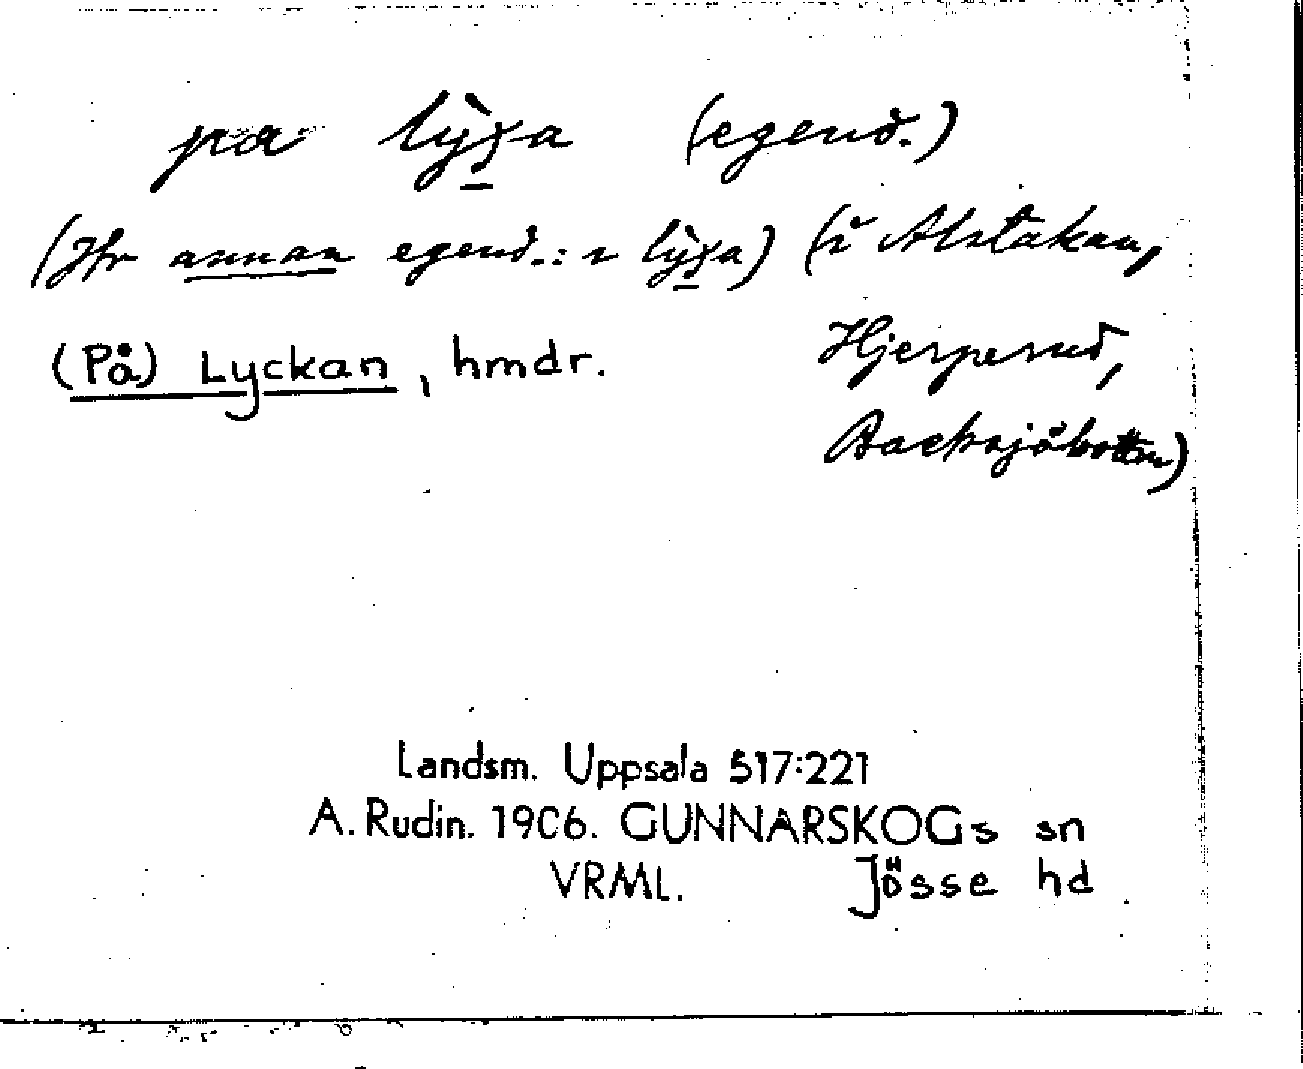 pa lỳʒa (egend.)
(Jfr annan egend.: ı lỳʒa) (i Alstakan,
Hjerperud,
(På) Lyckan, hmdr.
Backsjöbotten)
Landsm. Uppsala 517:221
A. Rudin. 1906. GUNNARSKOGs sn
VRML. Jösse hd